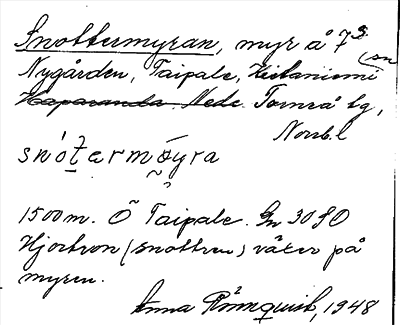 Snottermyran, myr å 7 s
(sn
Nygården, Taipale, Kestaniemi
Haparanda. Nede. Torneå lg,
Norrb. l
snót̠ermǿyra
1500 m. Ö Taipale. Gn 30 SO
Hjortron (snottren) växer på
myren.
Anna Rönnquist, 1948